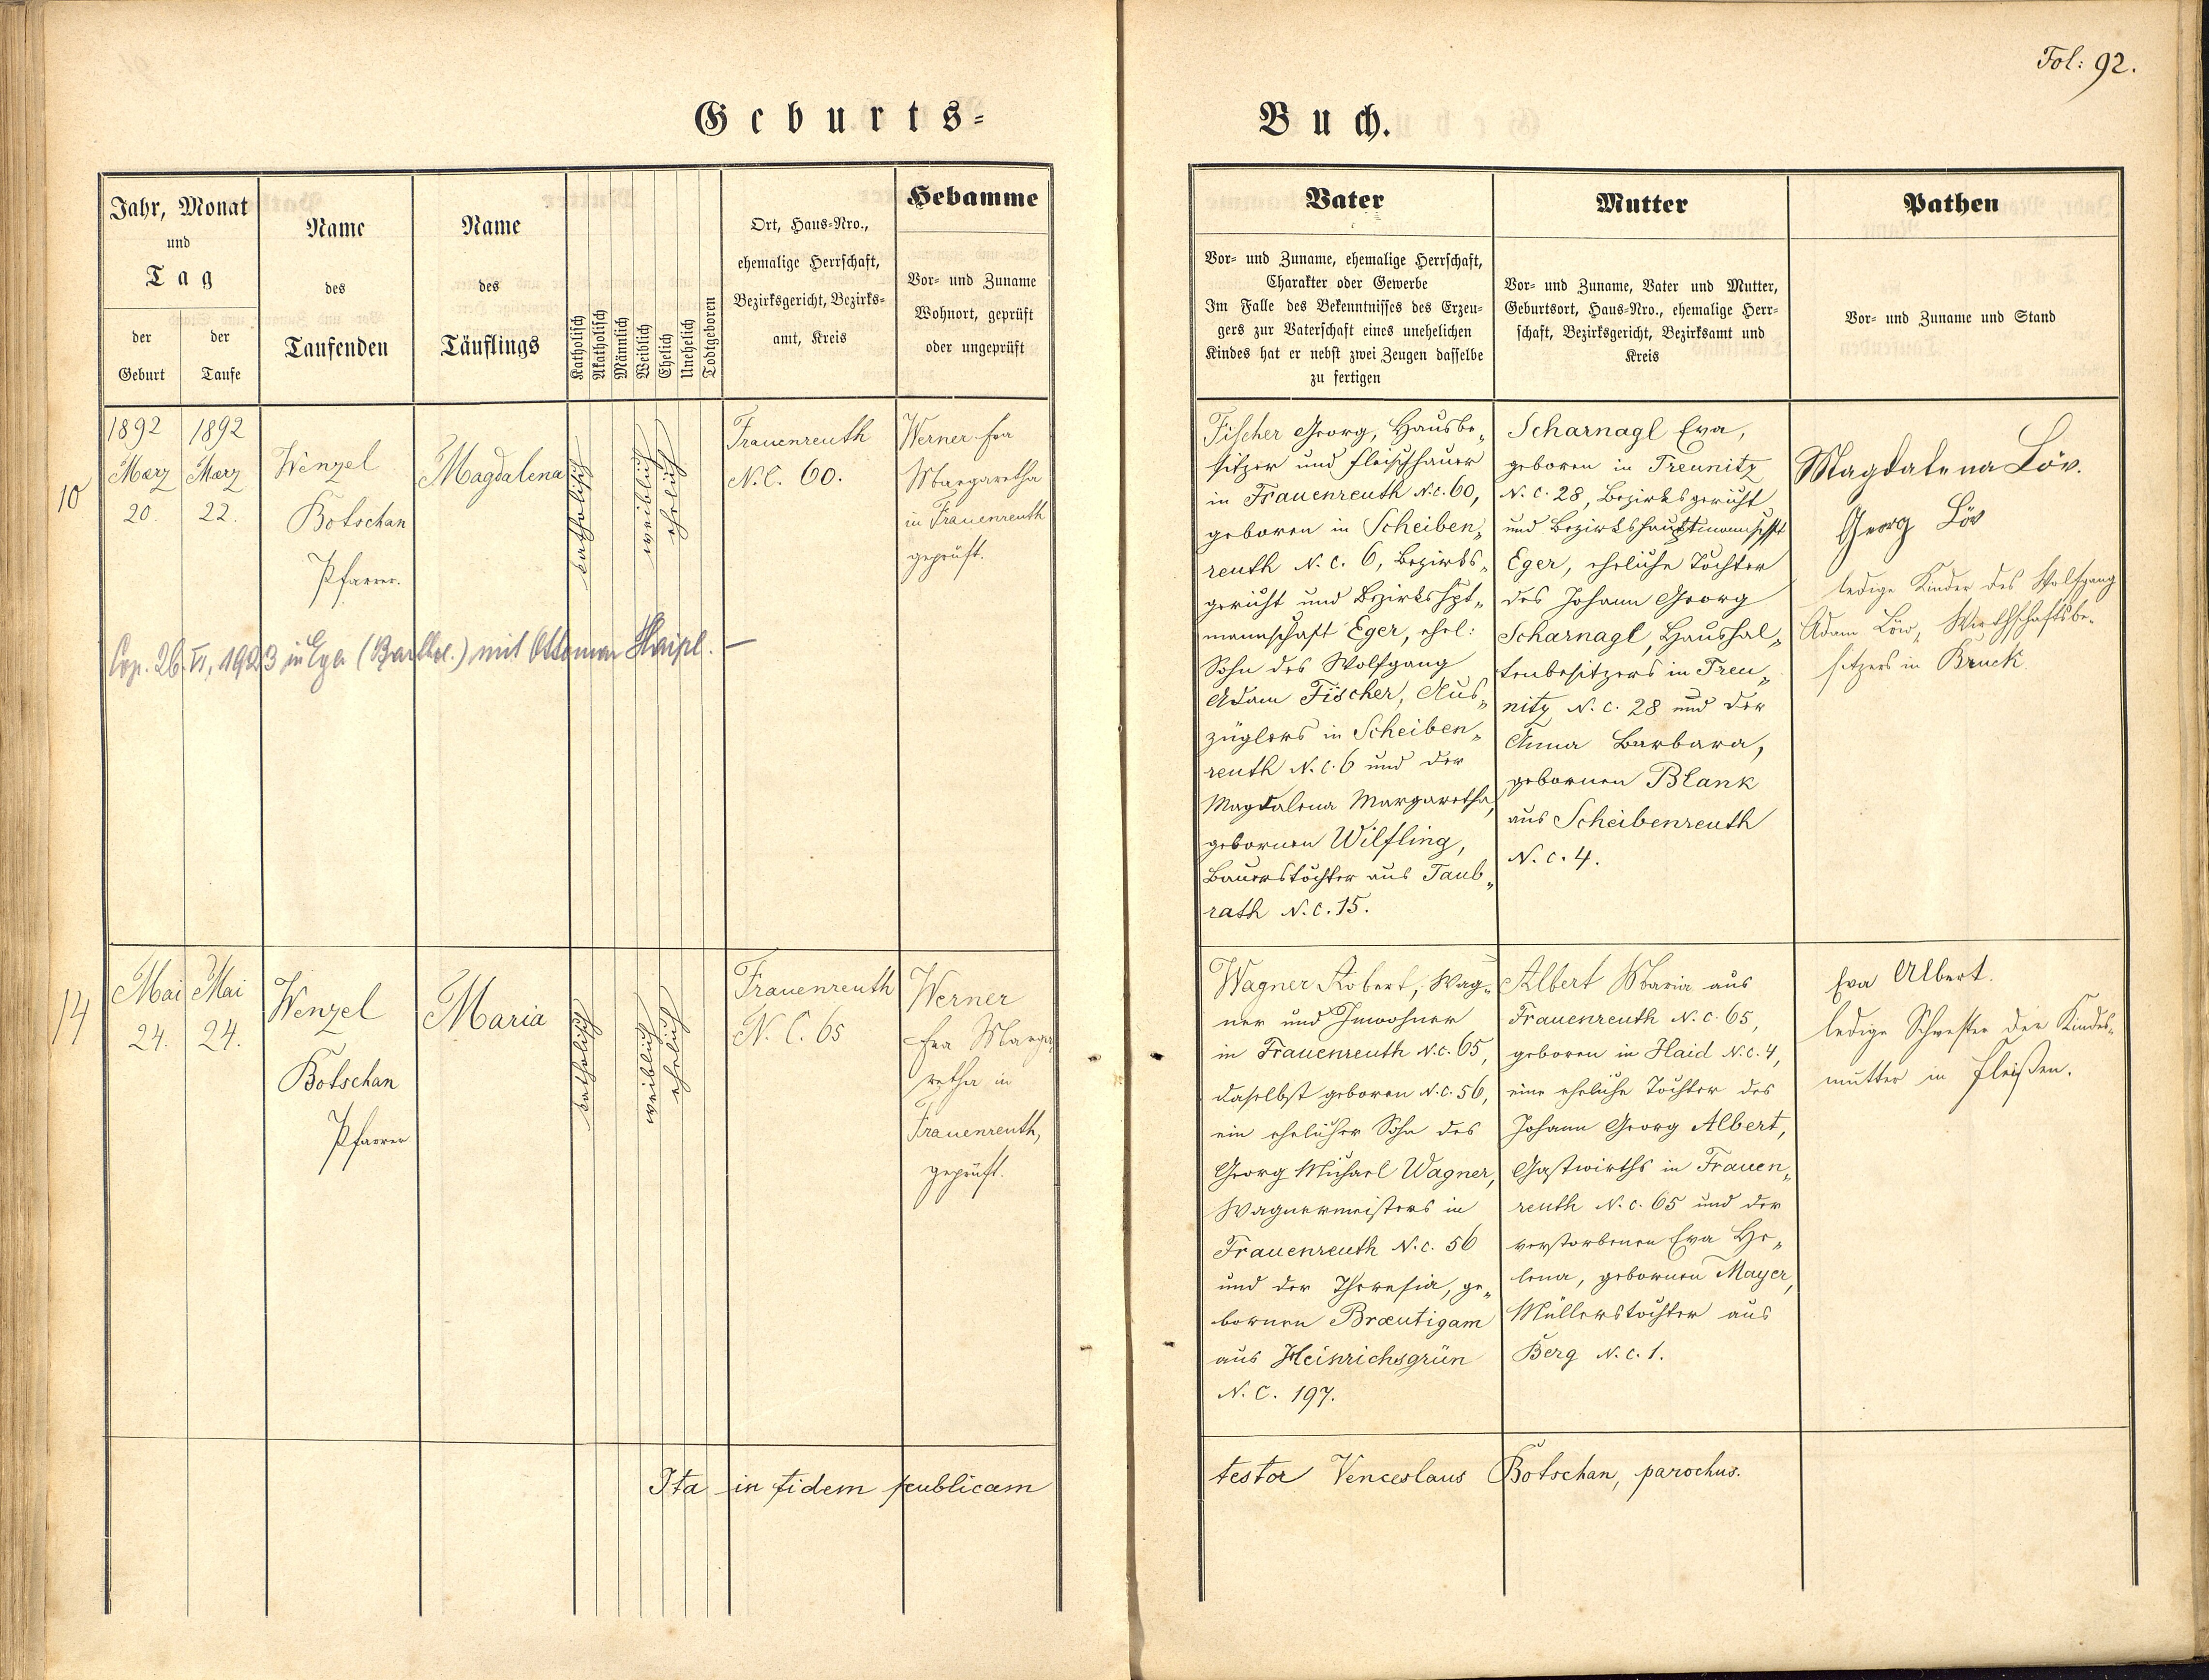 Fol: 92.
Geburts-
Buch.
Jahr, Monat
und
Tag
der
Geburt
der
Taufe
Name
des
Taufenden
Name
des
Täuflings
Katholisch
Akatholisch
Männlich
Weiblich
Ehelich
Unehelich
Todtgeboren
Ort, Haus-Nro.,
ehemalige Herrschaft,
Bezirksgericht, Bezirks-
amt, Kreis
Hebamme
Vor- und Zuname
Wohnort, geprüft
oder ungeprüft
Vater
Vor- und Zuname, ehemalige Herrschaft,
Charakter oder Gewerbe
Im Falle des Bekenntnisses des Erzeu-
gers zur Vaterschaft eines unehelichen
Kindes hat er nebst zwei Zeugen dasselbe
zu fertigen
Mutter
Vor- und Zuname, Vater und Mutter,
Geburtsort, Haus-Nro., ehemalige Herr-
schaft, Bezirksgericht, Bezirksamt und
Kreis
Pathen
Vor- und Zuname und Stand
10
1892
März
20.
1892
März
22.
Wenzel
Botschan
Pfarrer.
Magdalena
katholisch
weiblich
ehelich
Frauenreuth
N.C. 60.
Werner
Margaretha
in Frauenreuth
geprüft.
Cop. 26. VI. 1923 in Eger (Barthol.) mit Ottomar Haipl. —
Fischer Georg, Hausbe„
sitzer und Fleischhauer
in Frauenreuth N.c. 60,
geboren in Scheiben„
reuth N.c. 6, Bezirks„
gericht und Bezirkshpt„
mannschaft Eger, ehel:
Sohn des Wolfgang
Adam Fischer, Aus„
züglers in Scheiben„
reuth N.c. 6 und der
Magdalena Margaretha,
gebornen Wilfling,
Bauerstochter aus Taub„
rath N.c. 15.
Scharnagl Eva,
geboren in Treunitz
N.c. 28, Bezirksgericht
und Bezirkshauptmannschft
Eger, eheliche Tochter
des Johann Georg
Scharnagl, Haushal„
tenbesitzers in Treu„
nitz N.c. 28 und der
Anna Barbara,
gebornen Blank
aus Scheibenreuth
N.c. 4.
Magdalena Löv.
Georg Löv
ledige Kinder des Wolfgang
Adam Löw, Wirthschaftsbe-
sitzers in Bruck.
14
Mai
24.
Mai
24.
Wenzel
Botschan
Pfarrer
Maria
katholisch
weiblich
ehelich
Frauenreuth
N.C. 65
Werner
Marga
retha in
Frauenreuth,
geprüft.
Wagner Robert, Wag„
ner und Inwohner
in Frauenreuth N.c. 65,
daselbst geboren N.c. 56,
ein ehelicher Sohn des
Georg Michael Wagner,
Wagnermeisters in
Frauenreuth N.c. 56
und der Theresia, ge„
bornen Bræutigam
aus Heinrichsgrün
N.C. 197.
Albert Maria aus
Frauenreuth N.c. 65,
geboren in Haid N.c. 4,
eine eheliche Tochter des
Johann Georg Albert,
Gastwirths in Frauen„
reuth N.c. 65 und der
verstorbenen Eva He„
lena, gebornen Mayer,
Müllerstochter aus
Berg N.c. 1.
Eva Albert.
ledige Schwester der Kindes-
mutter in Fleißen.
Ita in fidem publicam
testor Venceslaus Botschan, parochus.